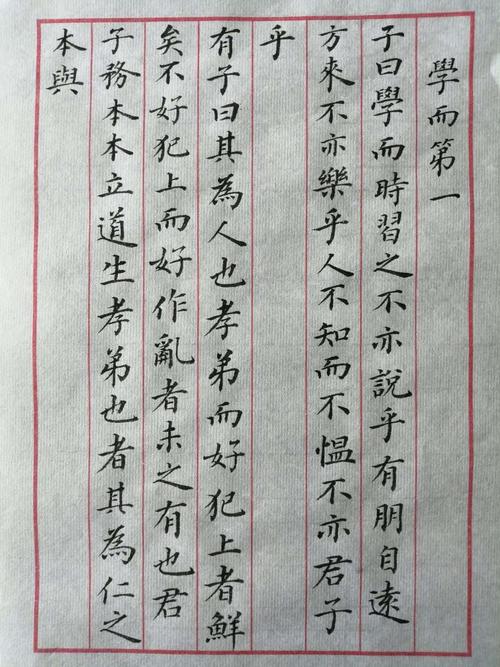 學而第一
子曰學而時習之不亦說乎有朋自遠
方來不亦樂乎人不知而不愠不亦君子
乎
有子曰其為人也孝弟而好犯上者鮮
矣不好犯上而好作亂者未之有也君
子務本本立道生孝弟也者其為仁之
本與